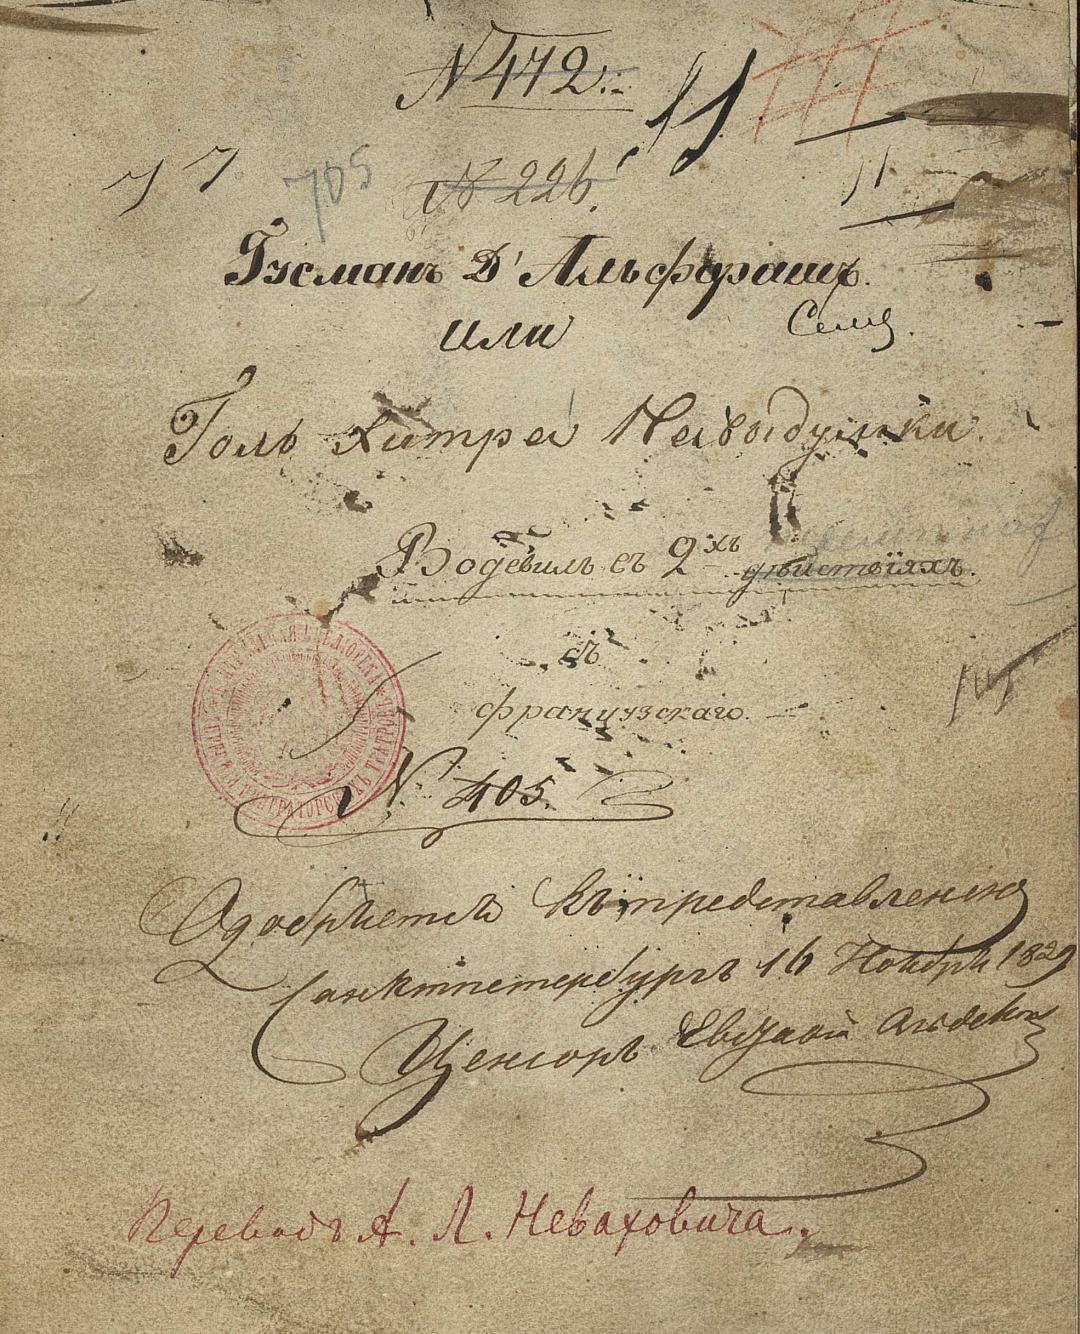 N 472.
11
77
705
N 226.
11
Гусманъ Д'Альфарашъ.
или
Голь хитра На выдумки.
Водевиль въ 2хъ дѣйствіяхъ.
съ
французскаго.
N. 405.
Одобряется къ представленію
Санктпетербургъ 16 Ноября 1829
Ценсоръ Евстафій Ольдекопъ
Переводъ А. Л. Неваховича.